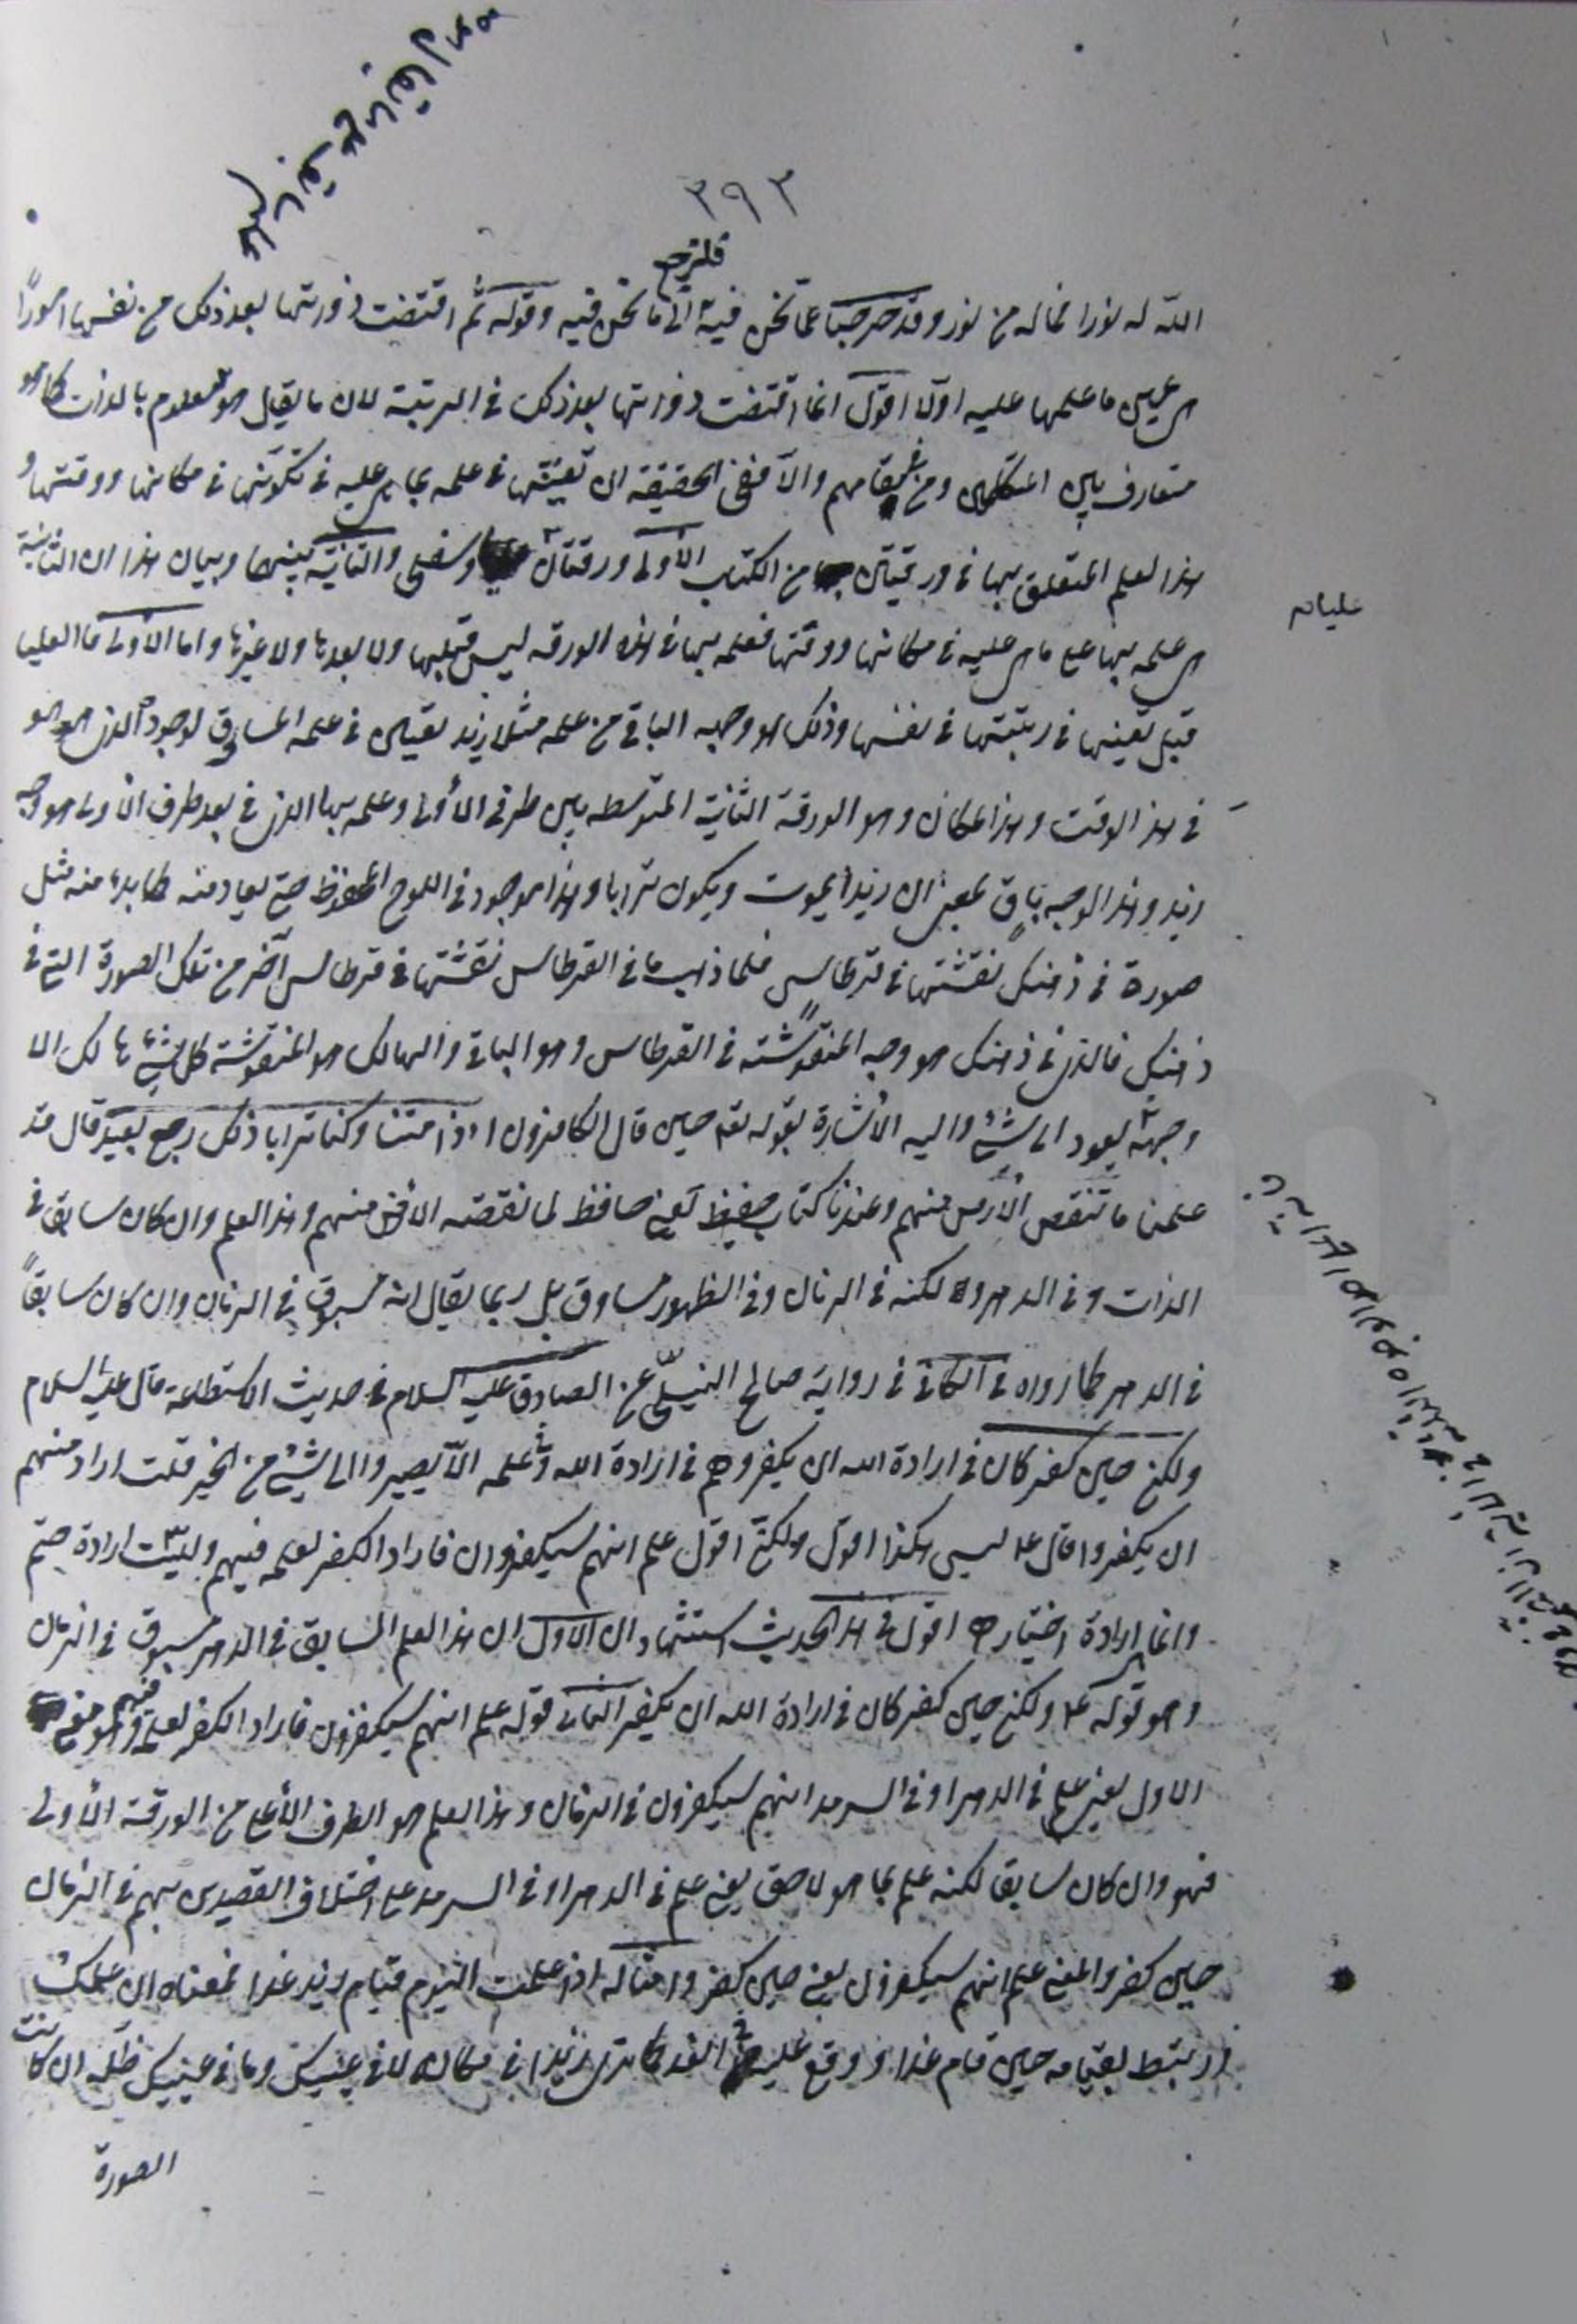 ٣٩٣
فلنرجع
الله له نورا فما له من نور وقد خرجنا عما نحن فيه الى ما نحن فيه وقوله ثم اقتضت ذواتها بعد ذلك من نفسها امورا
هي عين ما علمها عليه اولا اقول انما اقتضت ذواتها بعد ذلك في الرتبة لان ما يقال هو معلوم بالذات كما هو
متعارف بين المتكلمين ومن في مقامهم والا ففي الحقيقة ان تعينها في علمه بما هي عليه في تكونها في مكانها ووقتها و
هذا العلم المتعلق بها في ورقتين من الكتاب الاولى ورقتان وسفلى والثانية بينهما وبيان هذا ان الثانية
عليا نه
هي علمه بها على ما هي عليه في مكانها ووقتها فعلمه بها في هذه الورقة ليس قبلها ولا بعدها ولا غيرها واما الاولى فالعليا
قبل تعينها في رتبتها في نفسها وذلك هو وجهه الباقي من علمه مثلا زيد تعين في علمه المساوق لوجوده الذي هو هو
في هذا الوقت وهذا المكان وهو الورقة الثانية المتوسطة بين طرفي الأولى وعلمه بها الذي في بعد طرف الأولى هو وجه
زيد وهذا الوجه باق بمعنى ان زيدا يموت ويكون ترابا وهذا موجود في اللوح المحفوظ حتى يعاد منه كما بدء منه مثل
صورة في ذهنك نقشتها في قرطاس فلما ذهب ما في القرطاس نقشتها في قرطاس آخر من تلك الصورة التي في
ذهنك فالذي في ذهنك هو وجه المنقوشة في القرطاس وهو الباقي والهالك هو المنقوشة كل شيء هالك الا
وجهه يعود الى شيء واليه الأشارة بقوله تعه حين قال الكافرون ائذا متنا وكنا ترابا ذلك رجع بعيد قال قد
علمنا ما تنقص الأرض منهم وعندنا كتاب حفيظ يعني حافظ لما نقصته الارض منهم وهذا العلم وان كان سابقا في
الذات وفي الدهر لكنه في الزمان وفي الظهور مساوق بل ربما يقال انه مسبوق في الزمان وان كان سابقاً
في الدهر كما رواه في الكافي في رواية صالح النيلي عن الصادق عليه السلام في حديث الاستطاعة قال عليه السلام
ولكن حين كفر كان في ارادة الله ان يكفر وهم في ارادة الله وفي علمه الّا يصيروا الى شيء من الخير قلت اراد منهم
ان يكفروا قال ع ليس هكذا اقول ولكني اقول علم انهم سيكفرون فاراد الكفر لعلمه فيهم وليست ارادة حتم
وانما ارادة اختيار اقول في هذا الحديث استشهادان الاول ان هذا العلم السابق في الدهر مسبوق في الزمان
وهو قوله ع ولكن حين كفر كان في ارادة الله ان يكفر الثاني قوله علم انهم سيكفرون فاراد الكفر لعلمه فيهم وهو معنى
الاول يعني علم في الدهر او في السرمد انهم سيكفرون في الزمان وهذا العلم هو الطرف الأعلى من الورقة الأولى
فهو وان كان سابقا لكنه علم بما هو لاحق يعني علم في الدهر او في السرمد على اختلاف القصدين بهم في الزمان
حين كفر والمعنى علم انهم سيكفرون يعني حين كفر وامثاله اذا علمت اليوم قيام زيد غدا فمعناه ان علمك
ارتبط بقيامه حين قام غدا ووقع عليه في الغد كما ترى زيدا في مكان لا في عينيك وما في عينيك ظله ان كانت
الصورة